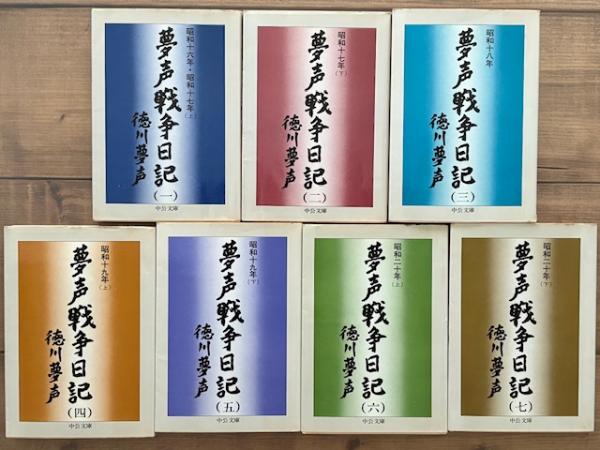 昭和十六年・昭和十七年(上)
夢声戦争日記(一)
徳川夢声
中公文庫
昭和十七年(下)
夢声戦争日記(二)
徳川夢声
中公文庫
昭和十八年
夢声戦争日記(三)
徳川夢声
中公文庫
昭和十九年(上)
夢声戦争日記(四)
徳川夢声
中公文庫
昭和十九年(下)
夢声戦争日記(五)
徳川夢声
中公文庫
昭和二十年(上)
夢声戦争日記(六)
徳川夢声
中公文庫
昭和二十年(下)
夢声戦争日記(七)
徳川夢声
中公文庫